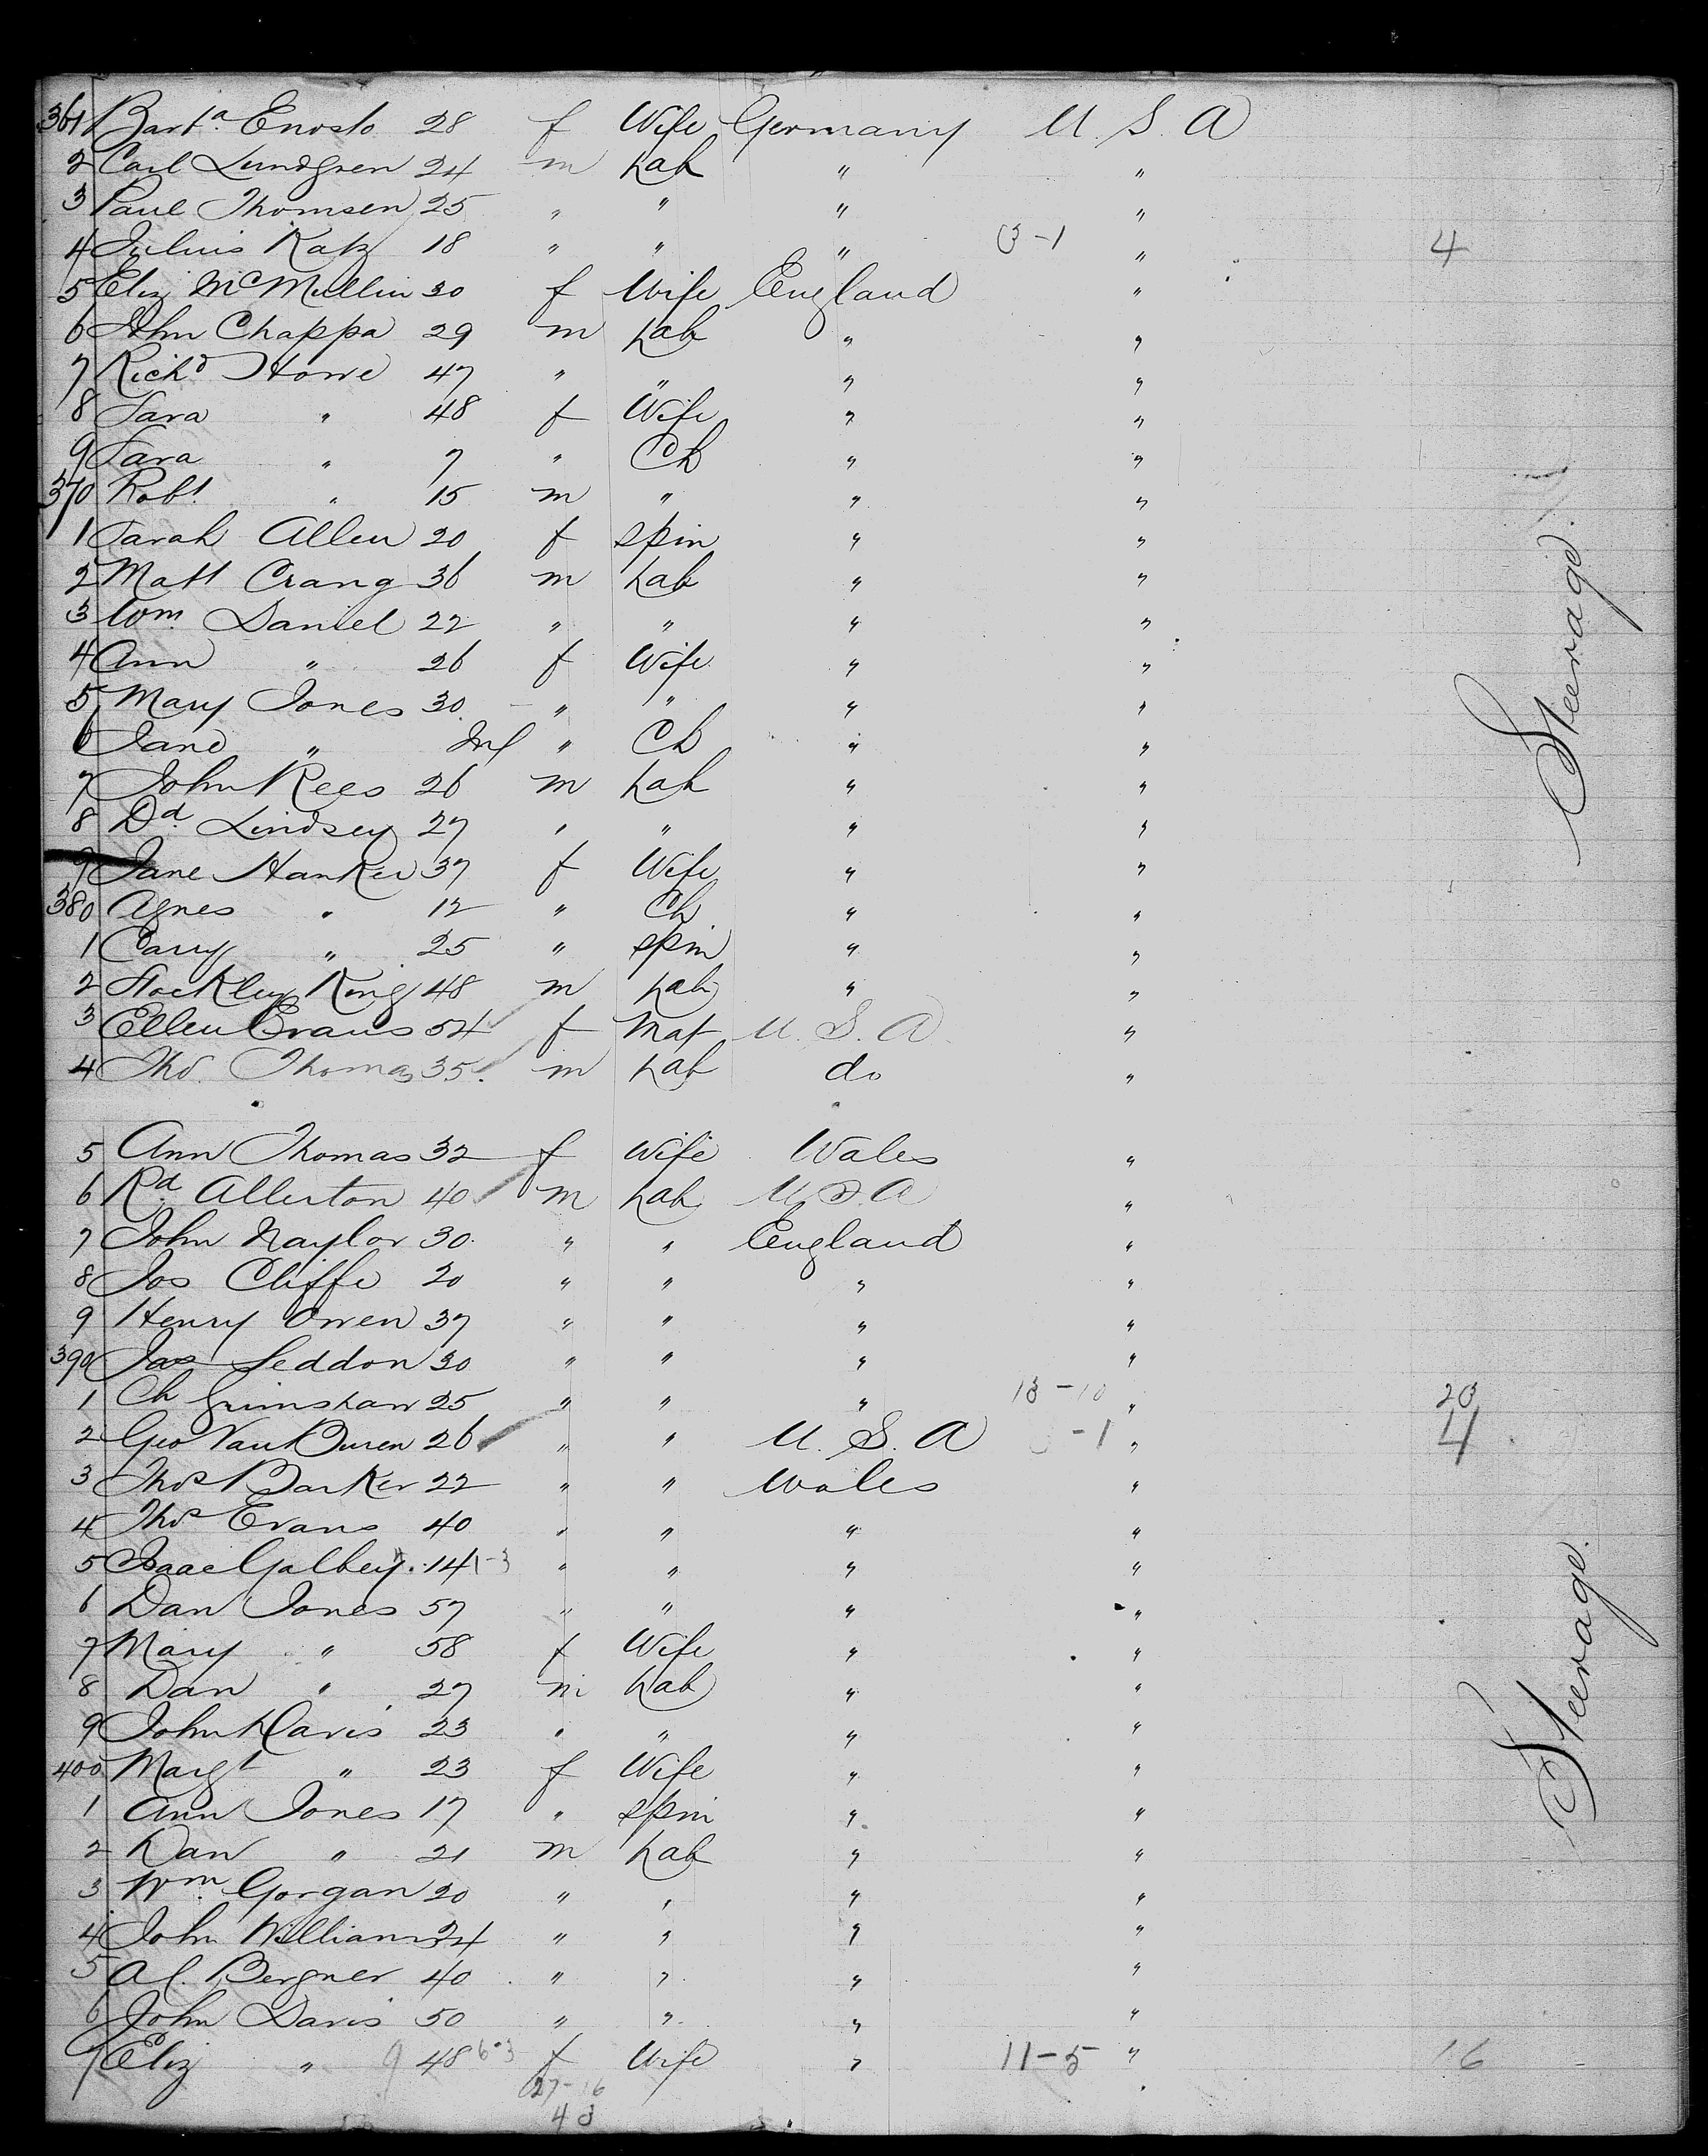 361 Barta Enosto 28 f Wife Germany U. S. A
2 Carl Lundgren 24 m Lab " "
3 Paul Thomsen 25 " " " "
4 Julius Katz 18 " " " 3-1 " 4
5 Eliz McMullin 30 f Wife England "
6 John Chappa 29 m Lab " "
7 Richd Howe 47 " " " "
8 Sara " 48 f Wife " "
9 Sara " 7 " Ch " "
370 Robt " 15 m " " "
1 Sarah Allen 20 f spin " "
2 Matt Crang 36 m Lab " "
3 Wm Daniel 22 " " " "
4 Ann " 26 f Wife " "
5 Mary Jones 30 " " " "
6 Jane " Inf " Ch " "
7 John Rees 26 m Lab " "
8 Dd Lindsey 27 " " " "
9 Jane Hanker 37 f Wife " "
380 Agnes " 12 " Ch " "
1 Carry " 25 " spin " "
2 Stockley King 48 m Lab " "
3 Ellen Evans 54 f Mat U. S. A "
4 Tho. Thomas 35 m Lab do "
Steerage.
5 Ann Thomas 32 f Wife Wales "
6 Rd Allerton 40 m Lab U S A "
7 John Naylor 30 " " England "
8 Jos Cliffe 20 " " " "
9 Henry Owen 37 " " " "
390 Jas Seddon 30 " " " "
1 Ch Grimshaw 25 " " " 13-10 " 23
2 Geo Van Buren 26 " " U. S. A 3-1 " 4
3 Thos Barker 22 " " Wales "
4 Thos Evans 40 " " " "
5 Isaac Galbey 14 1-3 " " " "
6 Dan Jones 57 " " " "
7 Mary " 58 f Wife " "
8 Dan " 27 m Lab " "
9 John Davis 23 " " " "
400 Margt " 23 f Wife " "
1 Ann Jones 17 " spin " "
2 Dan " 21 m Lab " "
3 Wm Gorgan 20 " " " "
4 John Williams 24 " " " "
5 Al. Bergner 40 " " " "
6 John Davis 50 " " " "
7 Eliz " 9 48 6-3 f Wife " 11-5 " 16
27-16
43
Steerage.